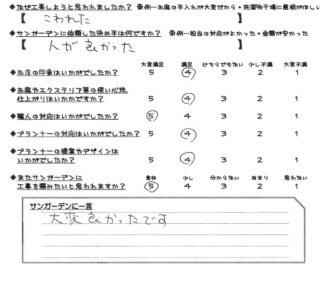 ◆なぜ工事しようと思われましたか？ ※例…お庭の手入れが大変だから・洗濯物干場に屋根がほしい
【 こわれた 】
◆サンガーデンに依頼した決め手は何ですか？ ※例…担当の対応がよかった・金額が安かった
【 人が良かった 】
大変満足 満足 どちらでもない 少し不満 大変不満
◆お店の印象はいかがでしたか？ 5 4 3 2 1
◆お庭やエクステリア等の使い心地、
仕上がりはいかがですか？ 5 4 3 2 1
◆職人の対応はいかがでしたか？ 5 4 3 2 1
◆プランナーの対応はいかがでしたか？ 5 4 3 2 1
◆プランナーの提案やデザインは
いかがでしたか？ 5 4 3 2 1
◆またサンガーデンに
工事を頼みたいと思われますか？
是非 少し 分からない あまり 思わない
5 4 3 2 1
サンガーデンに一言
大変良かったです